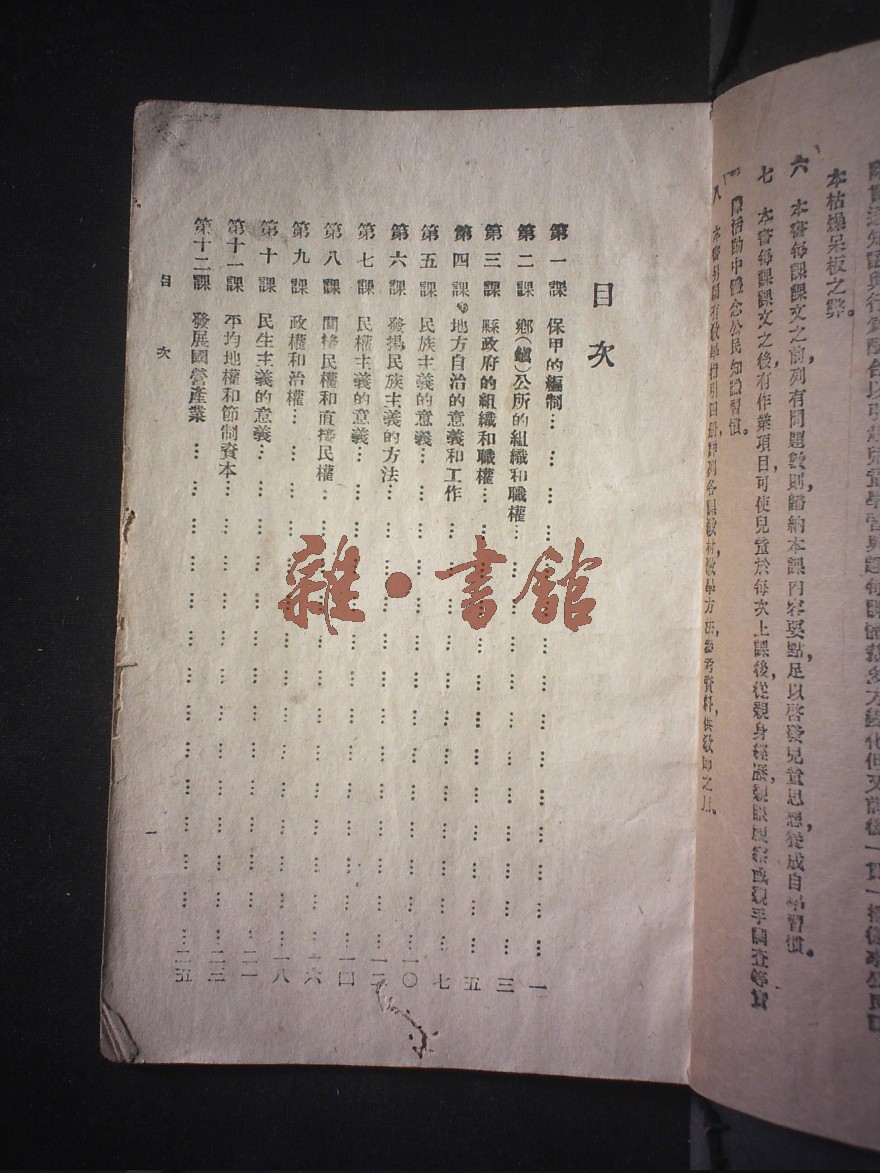 本枯燥呆板之弊。
六　本書每課課文之前，列有問題數則，歸納本課內容要點，足以啓發兒童思想，養成自學習慣。
七　本書每課課文之後，有作業項目，可使兒童於每次上課後，從親身經歷，親眼觀察，或親手調查等實
際活動中，體念公民知識習慣。
目次
第一課　保甲的編制…一
第二課　鄉（鎮）公所的組織和職權…三
第三課　縣政府的組織和職權…五
第四課　地方自治的意義和工作…七
第五課　民族主義的意義…一〇
第六課　發揚民族主義的方法…一二
第七課　民權主義的意義…一四
第八課　間接民權和直接民權…一六
第九課　政權和治權…一八
第十課　民生主義的意義…二一
第十一課　平均地權和節制資本…二三
第十二課　發展國營產業…二五
目次
一
雜·書館